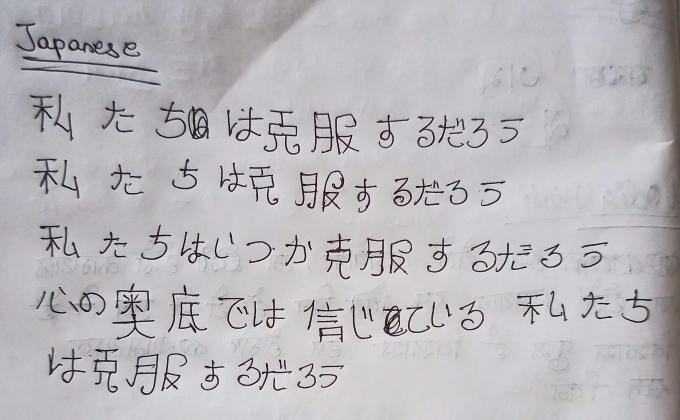 Japanese
私たちは克服するだろう
私たちは克服するだろう
私たちはいつか克服するだろう
心の奥底では信じている 私たち
は克服するだろう